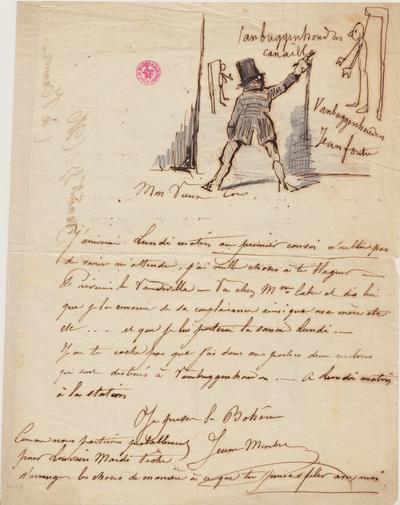 Vanbuggenhoudt
canaille
Vanbuggenhouden
Jeanfoutre
Mon Vieux
J'arriverai Lundi matin au premier convoi n'oublie pas
de venir m'attendre, j'ai mille choses à te blaguer
Préviens le Vaudeville — Va chez Mme et dis lui
que je la remercie de sa complaisance ainsi que sa mère etc
etc . . . . et que je lui porterai la somme Lundi. —
Je ne te cache pas que j'ai dans mes poches deux
qui sont destinés à Vanbuggenhouden. — A Lundi matin
à la station
La Bohême
Comme nous partirons probablement
pour Louvain Mardi tâche
d'arranger les choses de manière à ce que tu puisses filer avec moi